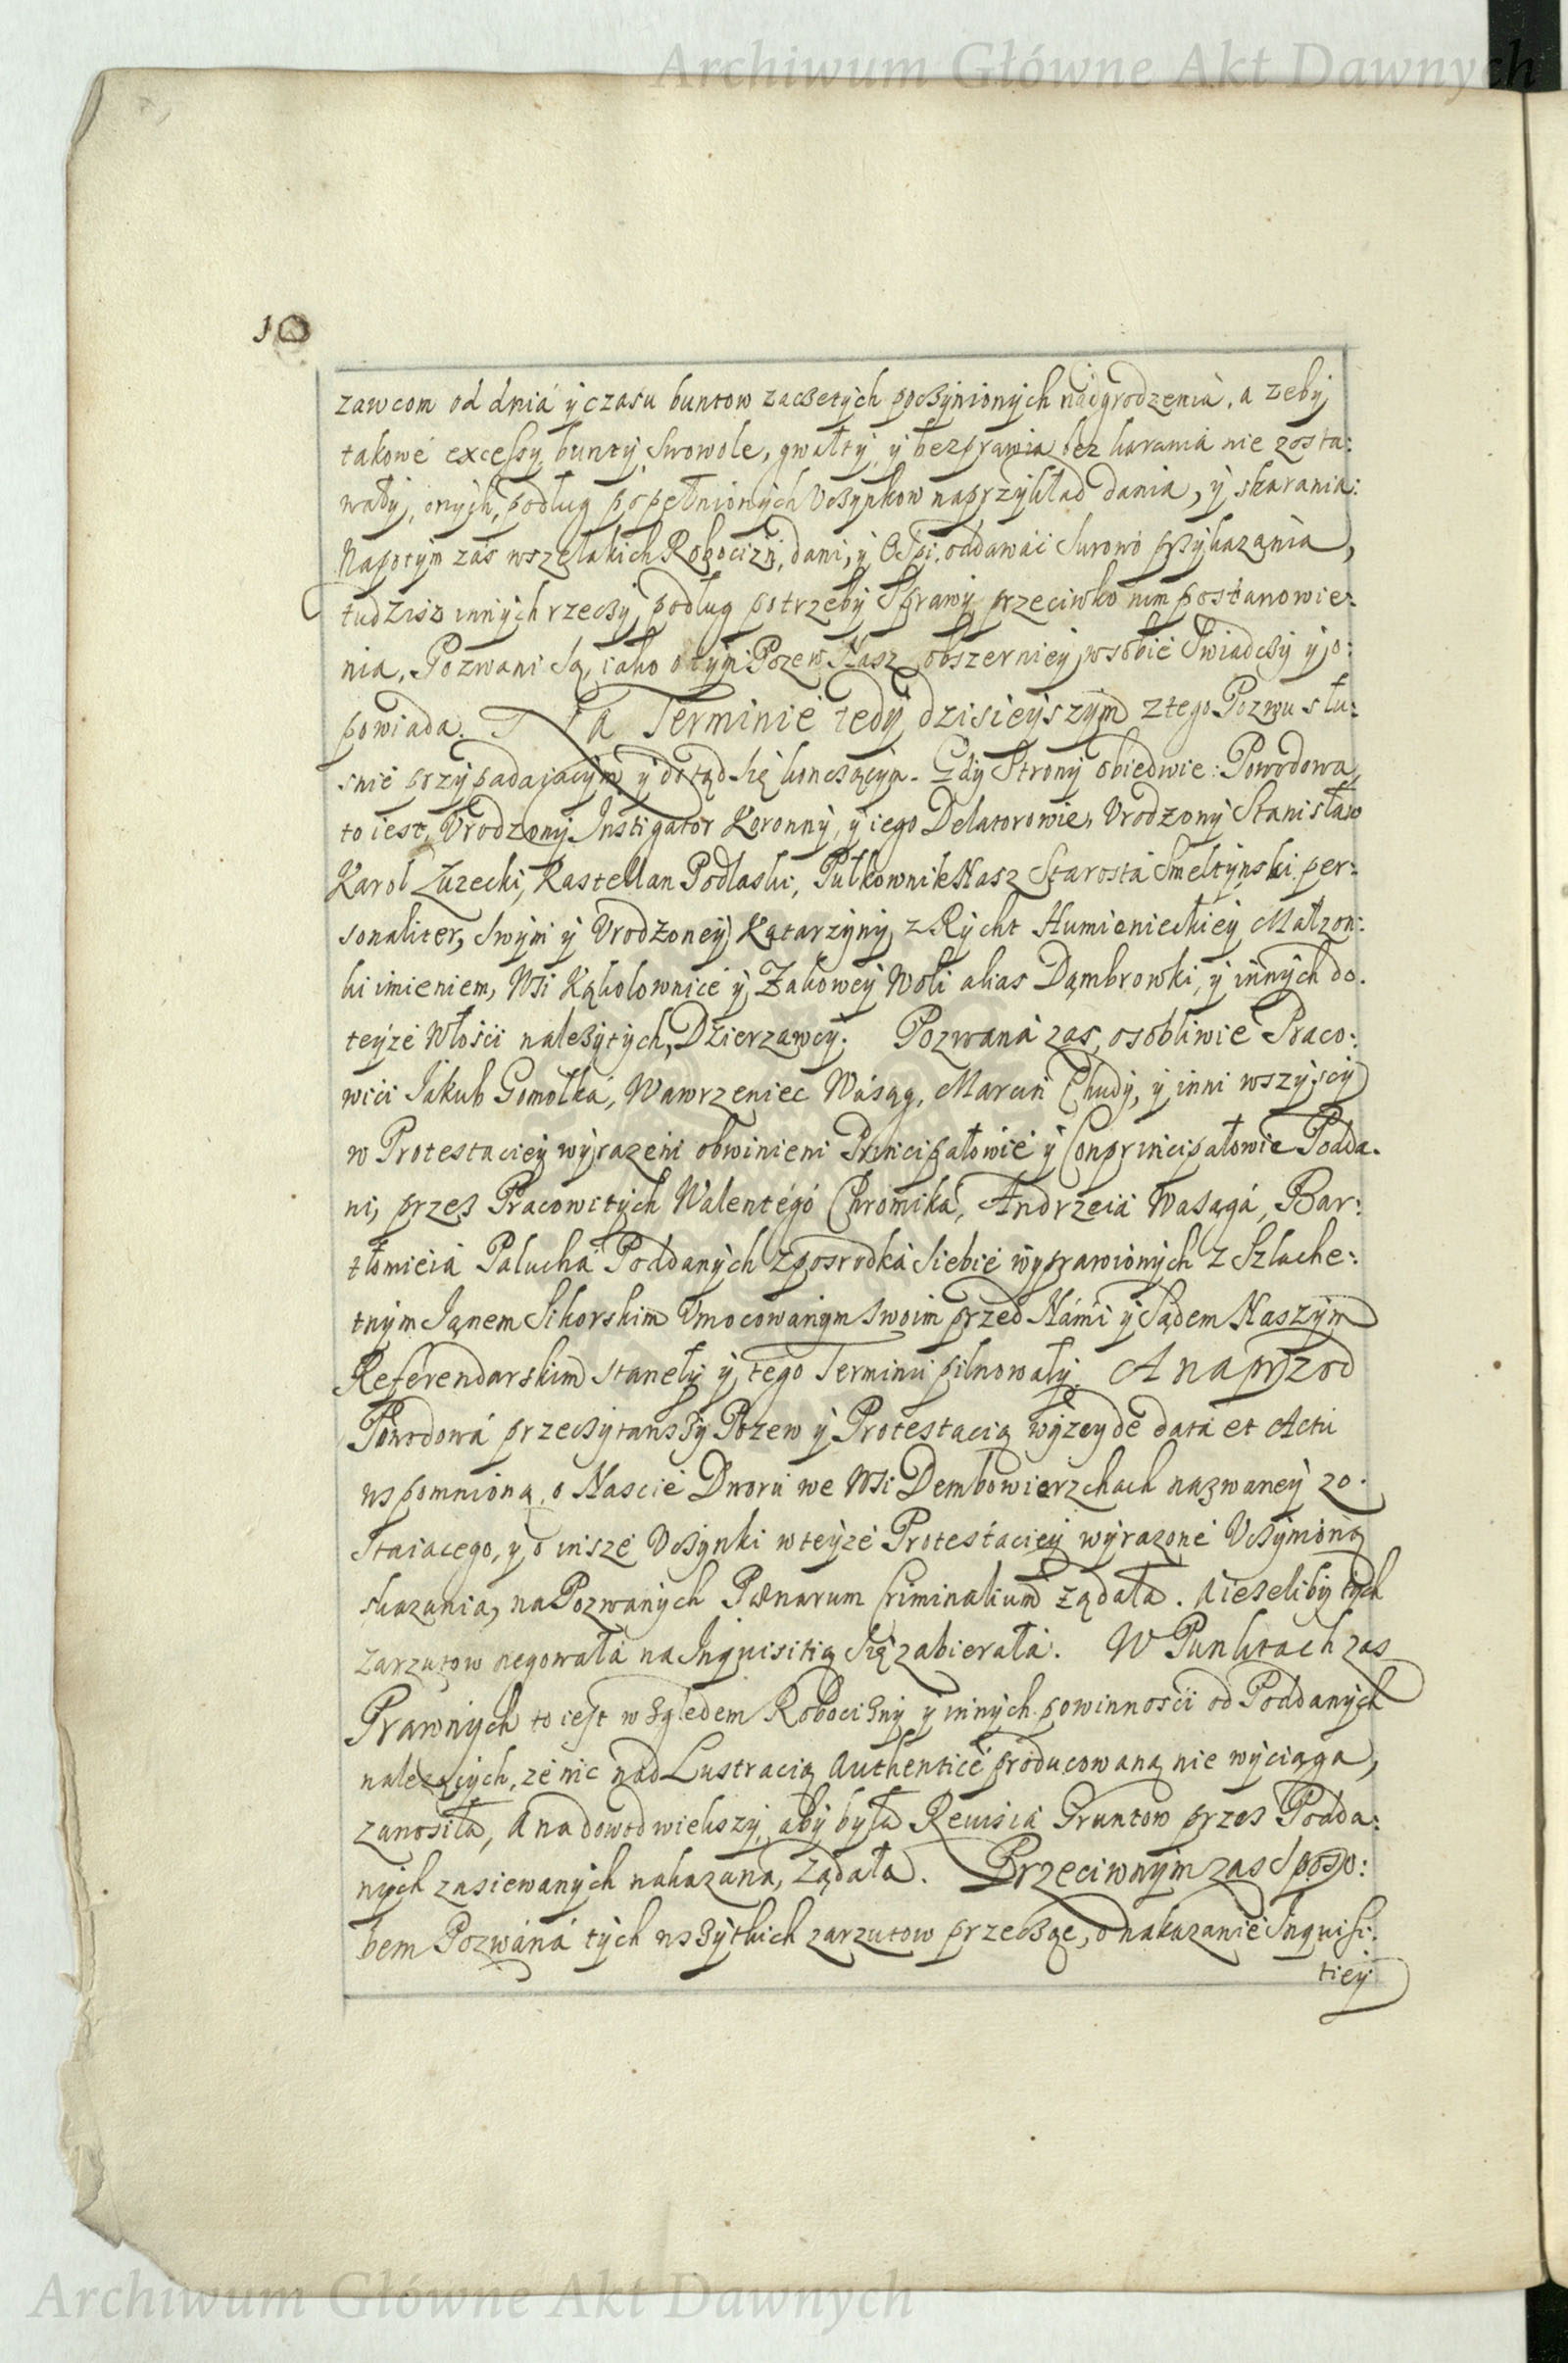 Archiwum Główne Akt Dawnych
10
zawcom od dnia y czasu buntow zaczętych poczynionych nadgrodzenia, a zeby
takowe excessy, bunty, swowole, gwałty, y bezprawia bez karania nie zosta:
wały, onych, podług popełnionych Uczynkow na przykład dania, y skarania:
Napotym zas wszelakich Robocizn, dani, y Ospi, oddawai surowo przykazania,
tudziesz innych rzeczy podług potrzeby Sprawy przeciwko nim postanowie:
nia, Pozwani są, iako o tym Pozew Nasz obszerniey w sobie swiadczy y o:
powiada. Na Terminie tedy dzisieyszym z tego Pozwu słu:
snie przypadaiącym y dotąd się konczącym. Gdy Strony obiedwie: Powodowa,
to iest, Urodzony Instigator Koronny, y iego Delatorowie, Urodzony Stanisław
Karol Łuzecki, Kasztellan Podlaski, Pułkownik Nasz Starosta Smeltynski per:
sonaliter, swym y Urodzoney Katarzyny z Rycht Humienieckiey Małzon:
ki imieniem, Wsi Kąkolownice y Zakowey Woli alias Dąmbrowki, y innych do.
teyze Włosci nalezytych, Dzierzawcy. Pozwana zas, osobliwie Praco:
wici Iakub Gomołka, Wawrzeniec Wasąg, Marcin Chudy, y inni wszyscy
w Protestaciey wyrazeni obwinieni Principałowie y Conprincipałowie Podda.
ni, przez Pracowitych Walentego Chromika, Andrzeia Wasąga, Bar:
tłomieia Palucha Poddanych z posrodka siebie wyprawionych z Szlache:
tnym Ianem Sikorskim Umocowanym swoim przed Nami y Sądem Naszym
Referendarskim stanęły y tego Terminu pilnowały. A naprzod
Powodowa przeczytawszy Pozew y Protestacią wyzey de data et Actu
wspomnioną, o Nascie Dworu we Wsi Dembowierzchach nazwaney zo.
staiacego, y o insze Uczynki w teyze Protestaciey wyrazone Uczynioną
skazania, na Pozwanych Pænarum Criminalium ządała. A ieseliby tych
zarzutow negowała na Inquisitią się zabierała. W Punktach zas
Prawnych to iest względem Robocizny y innych powinnosci od Poddanych
nalezących, ze nic nad Lustracią Authentice producowaną nie wyciąga,
zanosiła, A na dowod wiekszy, aby była Rewisia Gruntow przez Podda:
nych zasiewanych nakazana, ządała. Przeciwnym zas Sposo:
bem Pozwana tych wszytkich zarzutow przecząc, o nakazanie Inquisi:
tiey
Archiwum Główne Akt Dawnych